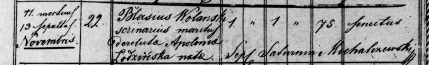 11. mortuus
13. sepultus
Novembris.
22.
Blasius Wolański
scrinarius maritus
derelicta Apolonia
Łodzińska nata
1 " 1 " 75. senectus
Sepel. Saturnin Michalczewski